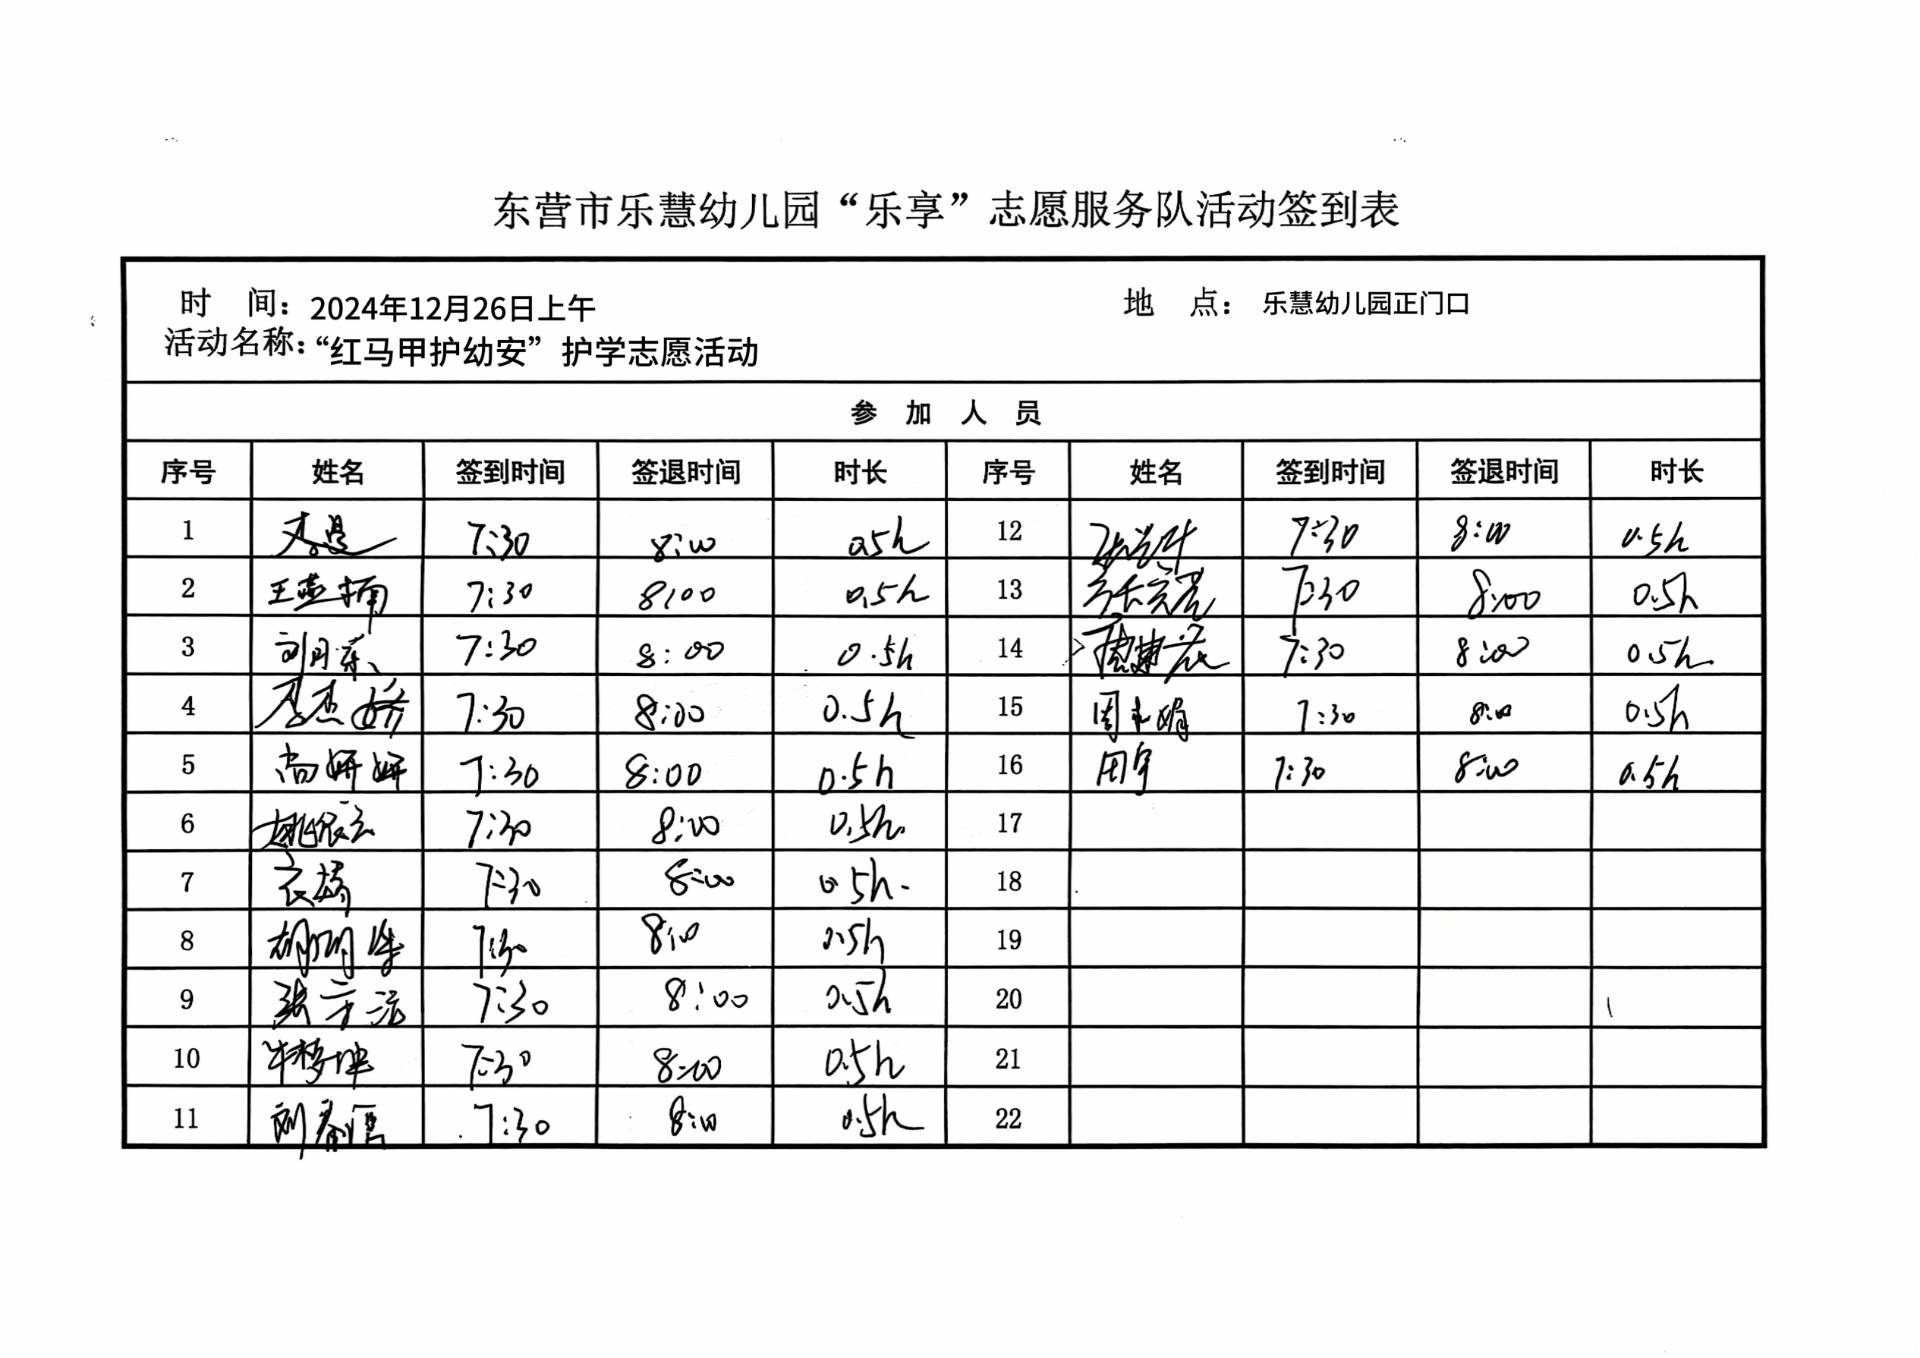 东营市乐慧幼儿园“乐享”志愿服务队活动签到表
时 间：2024年12月26日上午 地 点：乐慧幼儿园正门口
活动名称：“红马甲护幼安”护学志愿活动
参 加 人 员
序号 姓名 签到时间 签退时间 时长 序号 姓名 签到时间 签退时间 时长
1 7:30 8:00 0.5h 12 7:30 8:00 0.5h
2 王孟楠 7:30 8:00 0.5h 13 7:30 8:00 0.5h
3 7:30 8:00 0.5h 14 7:30 8:00 0.5h
4 李杰娇 7:30 8:00 0.5h 15 7:30 8:00 0.5h
5 尚妍妍 7:30 8:00 0.5h 16 田宇 7:30 8:00 0.5h
6 7:30 8:00 0.5h. 17
7 7:30 8:00 0.5h. 18
8 7:30 8:00 0.5h 19
9 7:30 8:00 0.5h 20
10 牛梦坤 7:30 8:00 0.5h 21
11 7:30 8:00 0.5h 22